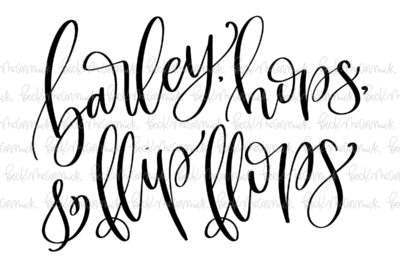 barley, hops,
& flip flops